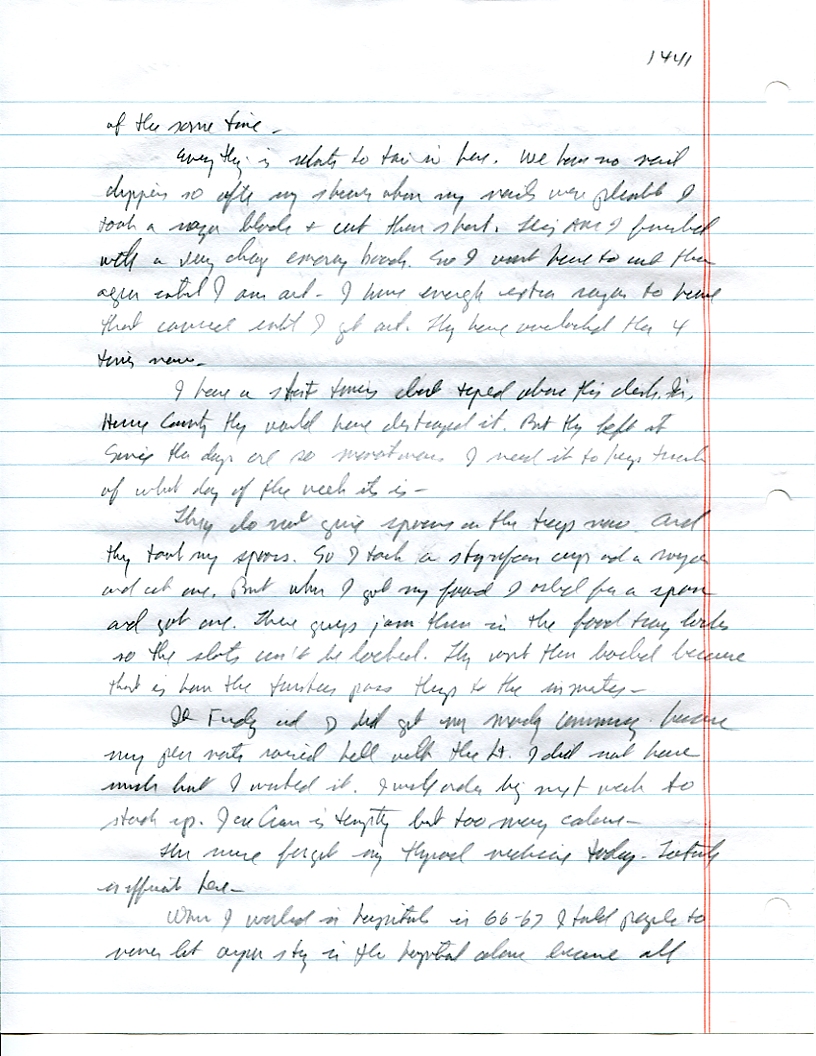 1441
of the same time -
Everything is relate to in here. We have no nail
clippers so after my shower when my nails were pliable I
took a razor blade + cut them short. This AM I finished
with a very cheap emery board. So I wont have to cut them
again until I am out - I have enough extra razors to have
that covered until I get out. They have overlooked them 4
times now -
I have a short times taped above this desk. In
County they would have destroyed it. But they left it
Since the days are so monotonous I need it to keep track
of what day of the week it is -
They do not give spoons on the trays now. And
they took my spoons. So I took a styrofoam cup and a razor
and cut one. But when I got my food I asked for a spoon
and got one. These guys jam them in the food tray locks
so the slots can't be locked. They want them because
that is how the trustees pass things to the inmates -
It is Friday and I did get my because
my raised hell with the Lt. I did not have
much but I wanted it. I will order big next week to
stock up. Ice Cream is tempting but too many calories -
The nurse forgot my thyroid medicine today -
is here -
When I worked in hospitals in 66-67 I told people to
never let anyone stay in the hospital alone because all